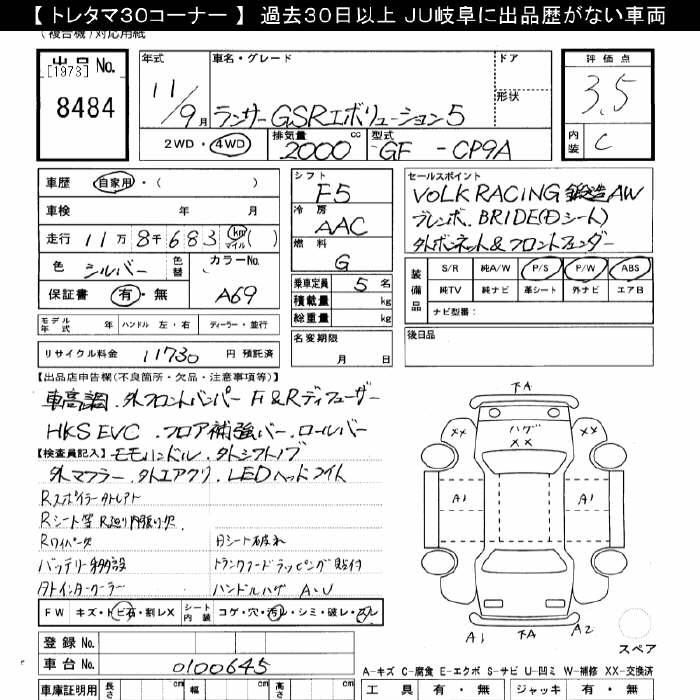 【 トレタマ30コーナー 】 過去30日以上 JU岐阜に出品歴がない車両
(複合機)対応用紙
出品 No.
[1973]
8484
年式
11/9月
車名・グレード
ランサーGSRエボリューション5
ドア
形状
2WD・4WD
排気量 2000 cc
型式 GF - CP9A
評価点
3.5
内装 C
車歴 自家用・( )
車検 年 月
走行 11万8千683 km マイル ( )
色 シルバー 色替
カラーNo. A69
保証書 有・無
シフト F5
冷房 AAC
燃料 G
乗車定員 5 名
積載量 kg
総重量 kg
名変期限
月 日
セールスポイント
VOLK RACING 鍛造AW
ブレンボ. BRIDE(Dシート)
外ボンネット&フロントフェンダー
装備品
S/R 純A/W P/S P/W ABS
純TV 純ナビ 革シート 外ナビ エアB
ナビ型番:
後日品
モデル年式 年 ハンドル 左・右 ディーラー・並行
リサイクル料金 11730 円 預託済
【出品店申告欄(不良箇所・欠品・注意事項等)】
車高調.外フロントバンパー F&Rディフューザー
HKS EVC .フロア補強バー.ロールバー
【検査員記入】モモハンドル.外シフトノブ
外マフラー.外エアクリ.LEDヘッドライト
Rスポイラー
Rシート等 R廻り内張り欠
Rワイパー欠 Dシート破れ
バッテリー移設 トランクフードラッピング貼付
外インタークーラー ハンドルハゲ A.U
FW キズ・トビ石・割レX シート内装 コゲ・穴・汚レ・シミ・破レ・スレ
下A
ハゲ
XX
XX XX
A1 A1
A1 下A A2
スペア
登録 No.
車台 No. 0100645
A-キズ C-腐食 E-エクボ S-サビ U-凹ミ W-補修 XX-交換済
車庫証明用 長さ cm 幅 cm 高さ cm
工具 有・無 ジャッキ 有・無